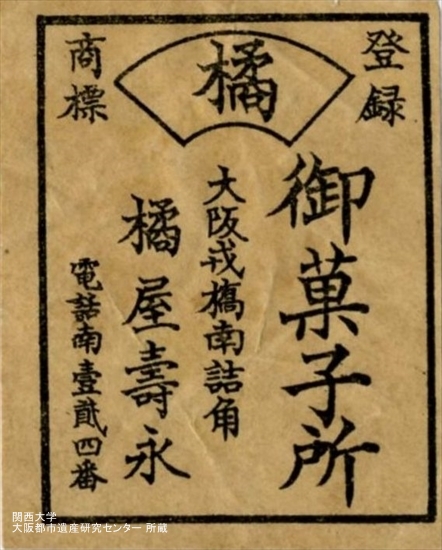 登録
橘
商標
御菓子所
大阪戎橋南詰角
橘屋壽永
電話南壹貳四番
関西大学
大阪都市遺産研究センター 所蔵